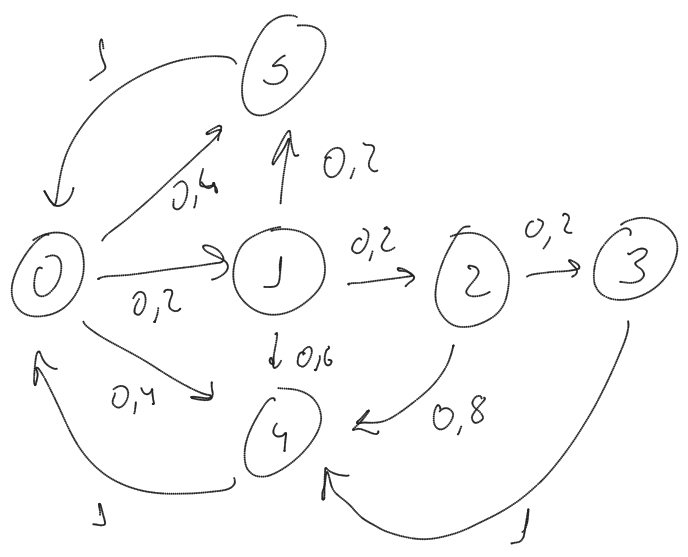 1
5
0,4
0,2
0
0,2
1
0,2
2
0,2
3
0,4
0,6
4
0,8
1
1